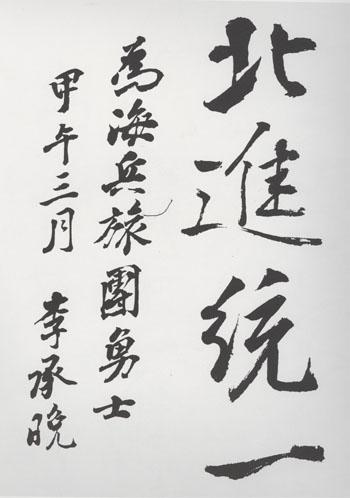 北進統一
為海兵旅團勇士
甲午三月 李承晩